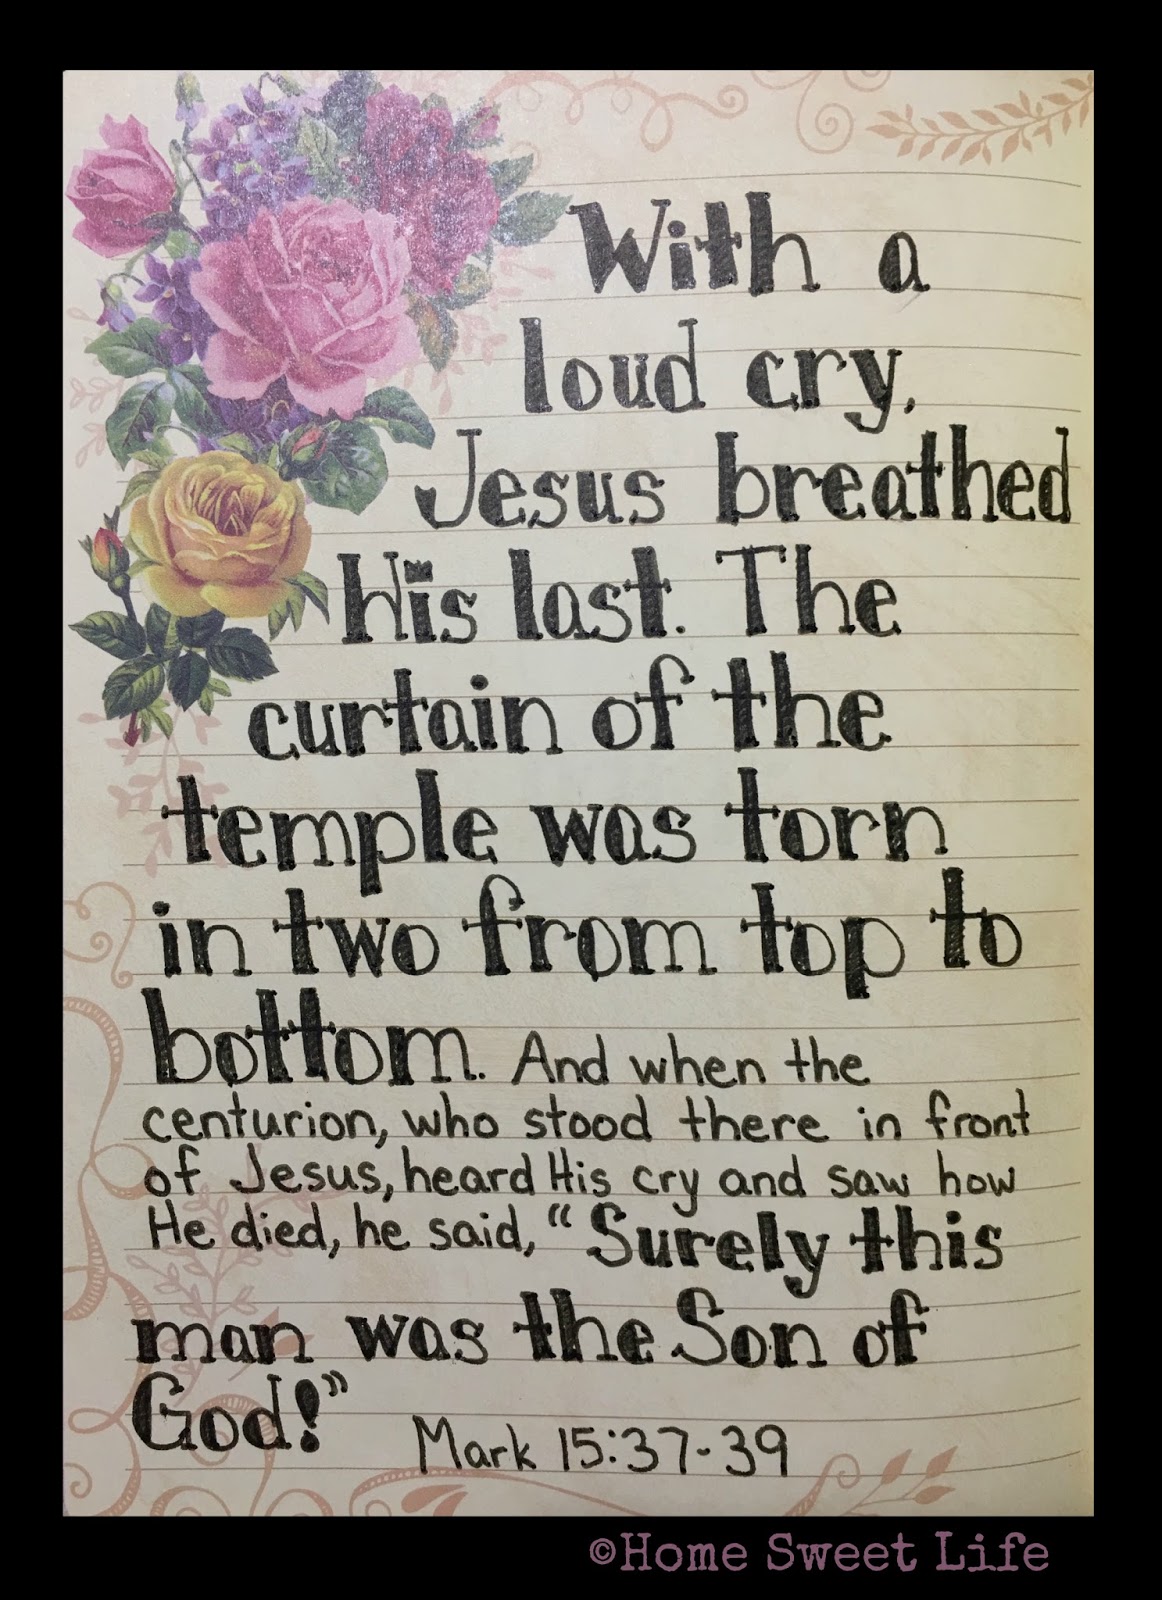 With a
loud cry,
Jesus breathed
His last. The
curtain of the
temple was torn
in two from top to
bottom. And when the
centurion, who stood there in front
of Jesus, heard His cry and saw how
He died, he said, "Surely this
man was the Son of
God!" Mark 15:37-39
©Home Sweet Life